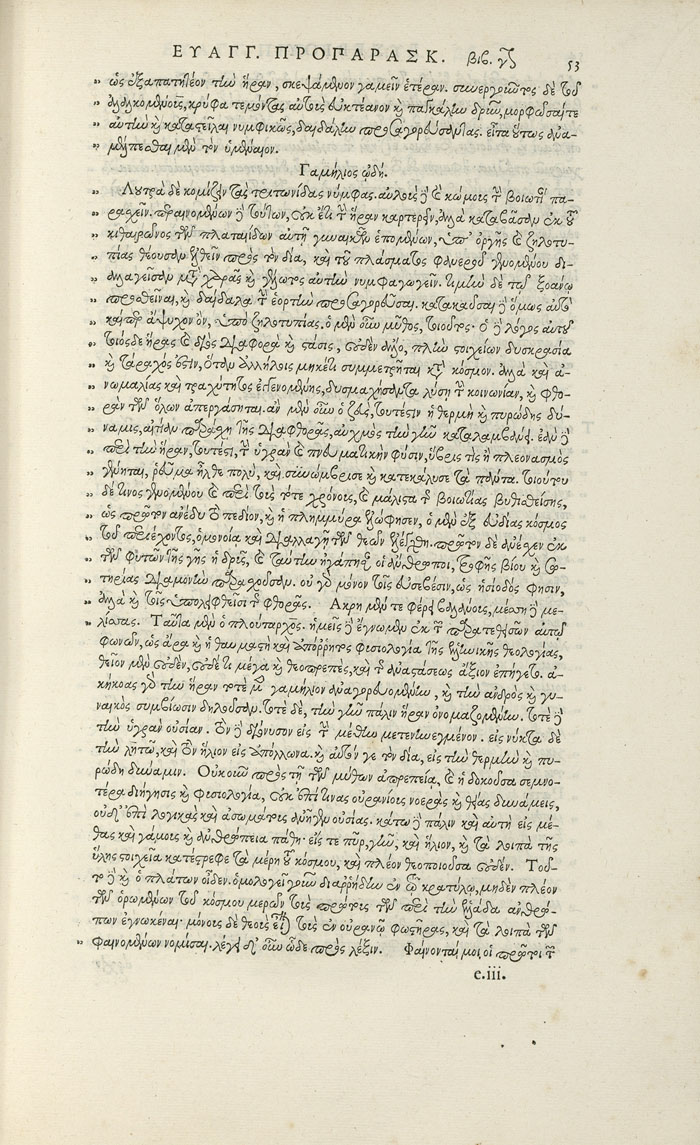 ΕΥΑΓΓ. ΠΡΟΠΑΡΑΣΚ. βιβ. γ 53
„ ὡς ἐξαπατητέον τὴν ἥραν, σκεψάμενον γαμεῖν ἑτέραν. συνεργοῦντος δὲ τοῦ
„ ἀλαλκομένους, κρύφα τεμόντας αὐτοὺς εὐκτέανον καὶ παγκάλην δρῦν, μορφῶσαί τε
„ αὐτὴν καὶ καταστεῖλαι νυμφικῶς, δαιδάλην προσαγορεύσαντας. εἶτα οὕτως ἀνα-
„ μέλπεσθαι μὲν τὸν ὑμέναιον.
Γαμήλιος ᾠδή.
„ Λουτρὰ δὲ κομίζειν τὰς τριτωνίδας νύμφας. αὐλοὺς δὲ καὶ κώμους τὴν βοιωτίαν πα-
„ ρασχεῖν. περαινομένων δὲ τούτων, οὐκ ἔτι τὴν ἥραν καρτερεῖν, ἀλλὰ καταβᾶσαν ἐκ τοῦ
„ κιθαιρῶνος τῶν πλαταιίδων αὐτῇ γυναικῶν ἑπομένων, ὑπ' ὀργῆς καὶ ζηλοτυ-
„ πίας θέουσαν ἐλθεῖν πρὸς τὸν δία, καὶ τοῦ πλάσματος φανεροῦ γενομένου δι-
„ αλλαγεῖσαν μετὰ χαρᾶς καὶ γέλωτος αὐτὴν νυμφαγωγεῖν. τιμὴν δὲ τῷ ξοάνῳ
„ προσθεῖναι, καὶ δαίδαλα τὴν ἑορτὴν προσαγορεῦσαι. κατακαῦσαι δὲ ὅμως αὐτὸ
„ καίπερ ἄψυχον ὂν, ὑπὸ ζηλοτυπίας. ὁ μὲν οὖν μῦθος, τοιοῦτος· ὁ δὲ λόγος αὐτοῦ
„ τοιόσδε ἥρας καὶ διὸς διαφορὰ καὶ στάσις, οὐδὲν ἄλλο, πλὴν στοιχείων δυσκρασία
„ καὶ τάραχός ἐστιν, ὅταν ἀλλήλοις μηκέτι συμμετρῆται κατὰ κόσμον. ἀλλὰ καὶ ἀ-
„ νωμαλίας καὶ τραχύτητος ἐγγενομένης, δυσμαχήσαντα λύσῃ τὴν κοινωνίαν, καὶ φθο-
„ ρὰν τῶν ὅλων ἀπεργάσηται. ἂν μὲν οὖν ὁ ζεύς, τουτέστιν ἡ θερμὴ καὶ πυρώδης δύ-
„ ναμις, αἰτίαν παράσχῃ τῆς διαφθορᾶς, αὐχμὸς τὴν γῆν καταλαμβάνει. ἐὰν δὲ
„ περὶ τὴν ἥραν, τουτέστι, τὴν ὑγρὰν καὶ πνευματικὴν φύσιν, ὕβρις τὶς ἢ πλεονασμὸς
„ γένηται, ῥεῦμα ἦλθε πολὺ, καὶ συνώμβρισε καὶ κατεκάλυσε τὰ πάντα. τοιούτου
„ δέ τινος γενομένου καὶ περὶ τοὺς τότε χρόνους, καὶ μάλιστα τῆς βοιωτίας βυθισθείσης,
„ ὡς πρῶτον ἀνέδυ τὸ πεδίον, καὶ ἡ πλημμύρα ἐλώφησεν, ὁ μὲν ἐξ εὐδίας κόσμος
„ τοῦ περιέχοντος, ὁμόνοια καὶ διαλλαγὴ τῶν θεῶν ἐλέχθη. πρῶτον δὲ ἀνέσχεν ἐκ
„ τῶν φυτῶν τῆς γῆς ἡ δρῦς, καὶ ταύτην ἠγάπησαν οἱ ἄνθρωποι, τροφῆς βίου καὶ σω-
„ τηρίας διαμονὴν παρασχοῦσαν. οὐ γὰρ μόνον τοῖς εὐσεβέσιν, ὡς ἡσίοδός φησιν,
„ ἀλλὰ καὶ τοῖς ὑπολειφθεῖσι τῆς φθορᾶς. Ἄκρη μέν τε φέρει βαλάνους, μέσση δὲ με-
„ λίσσας. Ταῦτα μὲν ὁ πλούταρχος. ἡμεῖς δὲ ἔγνωμεν ἐκ τῶν παρατεθεισῶν αὐτοῦ
φωνῶν, ὡς ἄρα καὶ ἡ θαυμαστὴ καὶ ἀπόρρητος φυσιολογία τῆς ἑλληνικῆς θεολογίας,
θεῖον μὲν οὐδὲν, οὐδέ τι μέγα καὶ θεοπρεπὲς, καὶ τῆς ἀναστάσεως ἄξιον ἐπήγετο. ἀ-
κήκοας γὰρ τὴν ἥραν τοτὲ μὲν γαμήλιον ἀναγορευομένην, καὶ τὴν ἀνδρὸς καὶ γυ-
ναικὸς συμβίωσιν δηλοῦσαν. τοτὲ δὲ, τὴν γῆν πάλιν ἥραν ὀνομαζομένην. τοτὲ δὲ
τὴν ὑγρὰν οὐσίαν. τὸν δὲ διόνυσον εἰς τὴν μέθην μετενηνεγμένον. εἰς νύκτα δὲ
τὴν λητὼ, καὶ τὸν ἥλιον εἰς ἀπόλλωνα. καὶ αὐτόν γε τὸν δία, εἰς τὴν θερμὴν καὶ πυ-
ρώδη δύναμιν. Οὐκοῦν πρὸς τῇ τῶν μύθων ἀπρεπείᾳ, καὶ ἡ δοκοῦσα σεμνο-
τέρα διήγησις καὶ φυσιολογία, οὐκ ἐπί τινας οὐρανίους νοερὰς καὶ θείας δυνάμεις,
οὐδ' ἐπὶ λογικὰς καὶ ἀσωμάτους ἀνῆγεν οὐσίας. κάτω δὲ πάλιν καὶ αὐτὴ εἰς μέ-
θας καὶ γάμους καὶ ἀνθρώπεια πάθη. εἴς τε πῦρ, γῆν, καὶ ἥλιον, καὶ τὰ λοιπὰ τῆς
ὕλης στοιχεῖα κατέστρεφε τὰ μέρη τοῦ κόσμου, καὶ πλέον θεοποιοῦσα οὐδέν. Τοῦ-
το δὲ καὶ ὁ πλάτων οἶδεν. ὁμολογεῖ γοῦν διαρρήδην ἐν τῷ κρατύλῳ, μηδὲν πλέον
τῶν ὁρωμένων τοῦ κόσμου μερῶν τοὺς πρώτους τῶν περὶ τὴν ἑλλάδα ἀνθρώ-
πων ἐγνωκέναι. μόνους δὲ θεοὺς εἶναι τοὺς ἐν οὐρανῷ φωστῆρας, καὶ τὰ λοιπὰ τῶν
„ φαινομένων νομίσαι. λέγει δ' οὖν ὧδε πρὸς λέξιν. Φαίνονταί μοι οἱ πρῶτοι τῶν
e.iii.